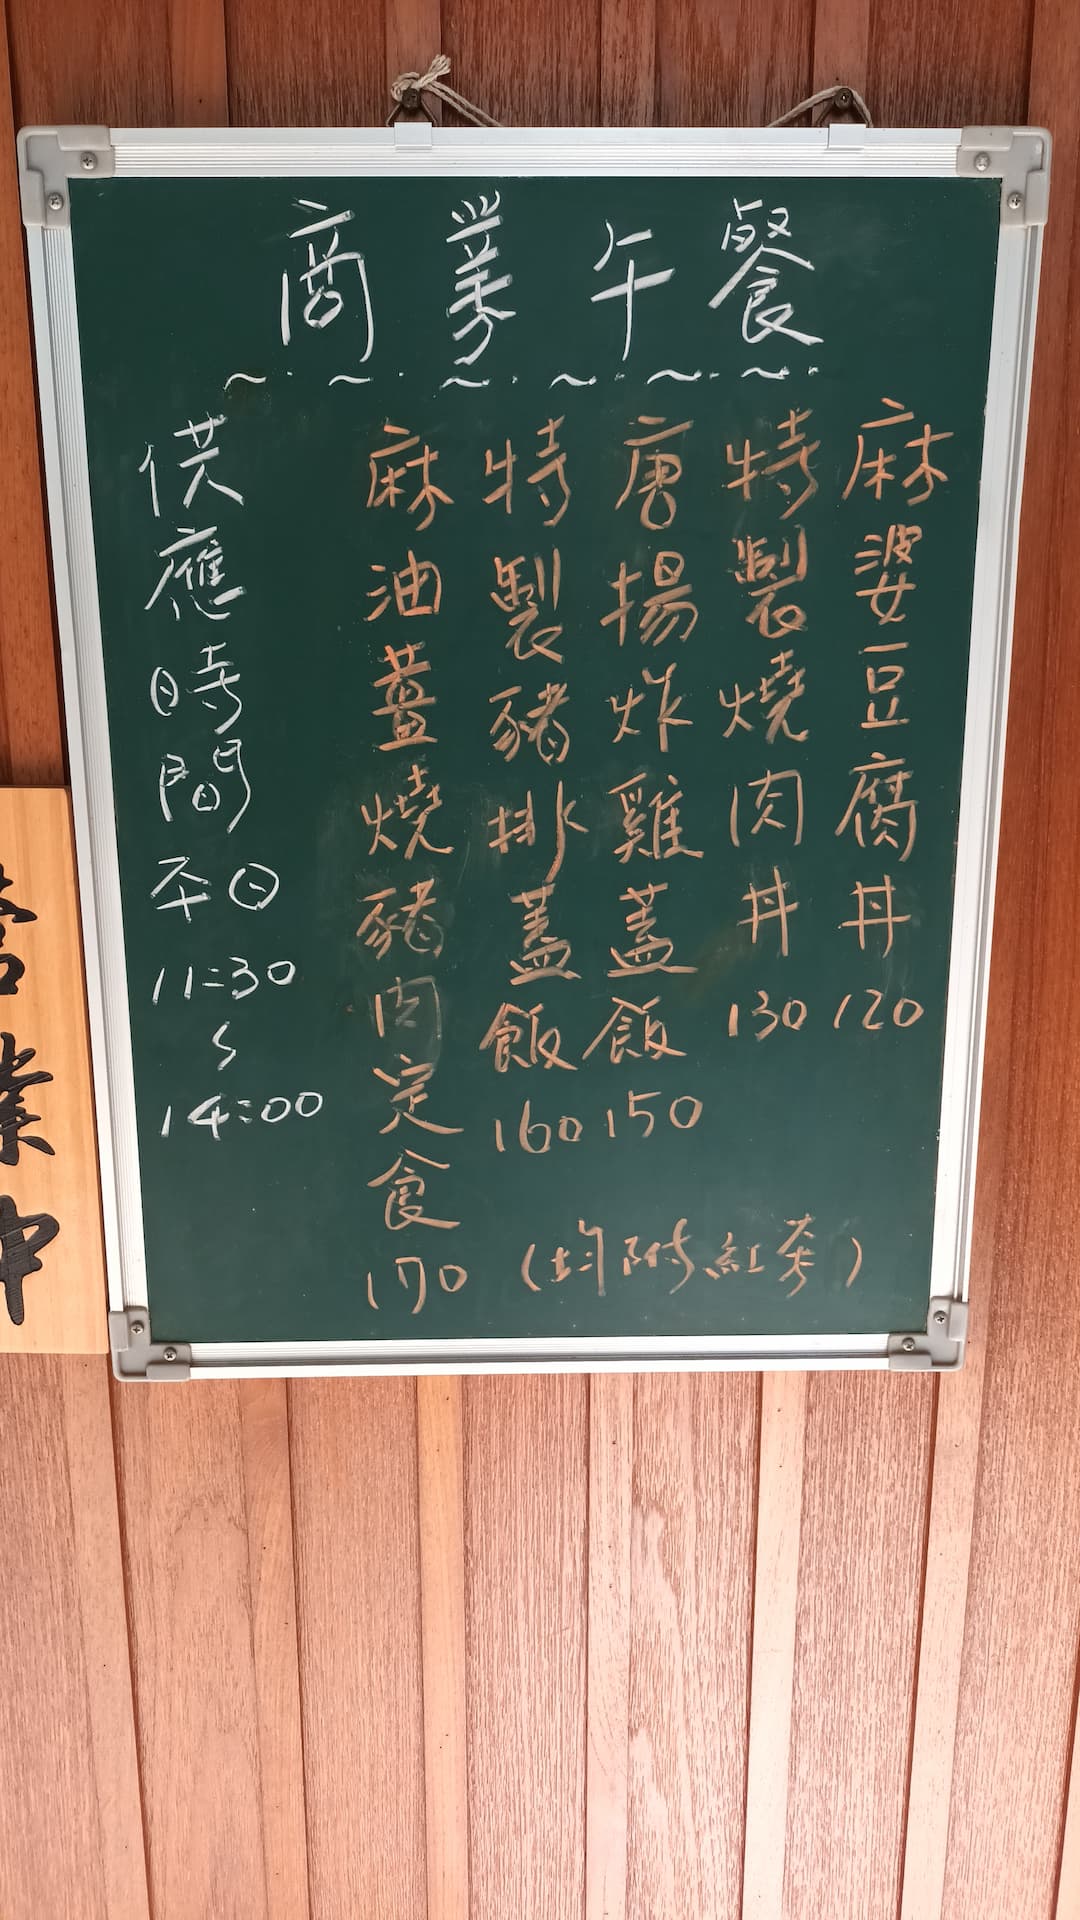 商業午餐
～·～·～·～·～·～·
麻婆豆腐丼120
特製燒肉丼130
唐揚炸雞蓋飯150
特製豬排蓋飯160
麻油薑燒豬肉定食170
(均附紅茶)
供應時間平日11:30~14:00
營業中